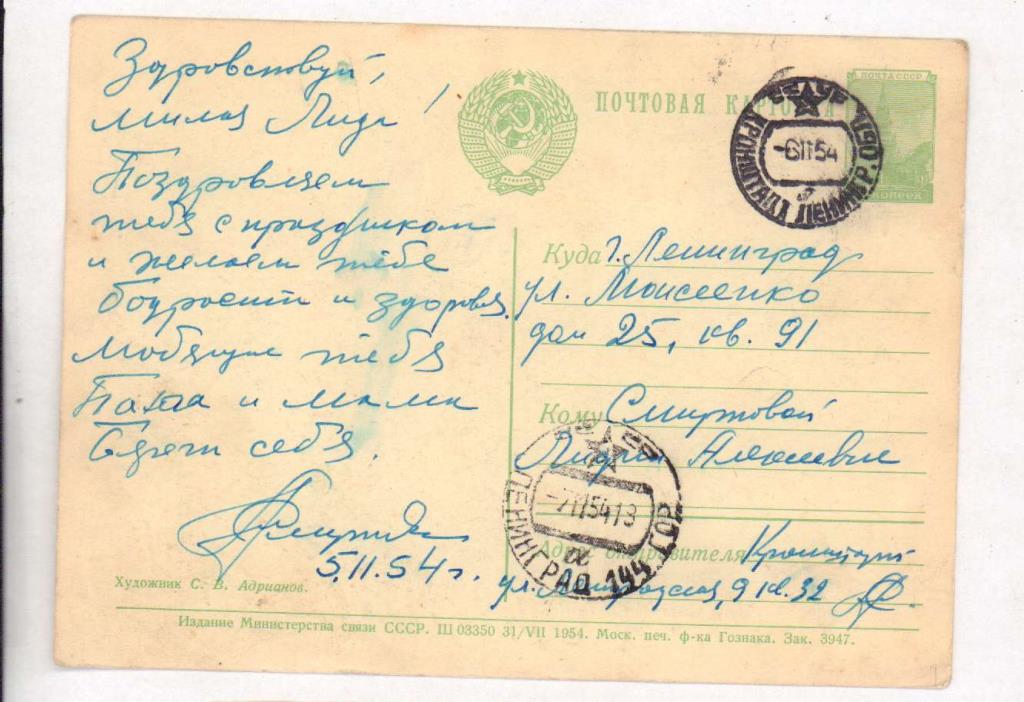 Здровствуй,
милая Лида!
Поздровляем
тебя с праздником
и желаем тебе
бодрости и здоровья.
любящие тебя
Папа и мама
Береги себя.
5.11.54г.
Художник С. В. Адрианов.
ПОЧТОВАЯ КАРТОЧКА
ПОЧТА СССР
КРОНШТАДТ ЛЕНИНГР. ОБЛ.
-6 11 54
Куда г. Ленинград
ул. Моисеенко
дом 25, кв. 91
Кому
Лидии Алексеевне
-7 11 54 13
ЛЕНИНГРАД 144 ГОР
Адрес отправителя Кронштадт
ул. 9 кв. 32
Издание Министерства связи СССР. Ш 03350 31/VII 1954. Моск. печ. ф-ка Гознака. Зак. 3947.